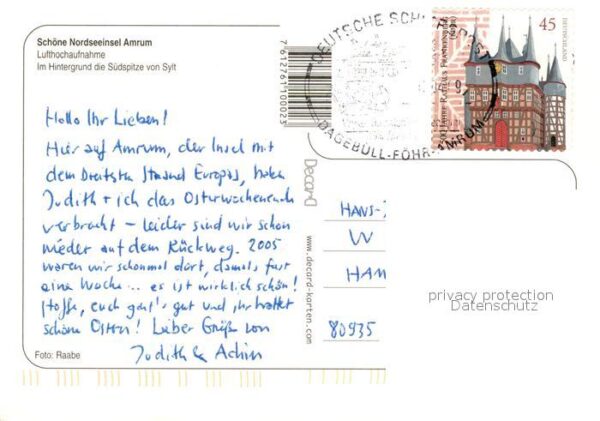 Schöne Nordseeinsel Amrum
Lufthochaufnahme
Im Hintergrund die Südspitze von Sylt
Hallo Ihr Lieben!
Hier auf Amrum, der Insel mit
dem breitesten Strand Europas, haben
Judith + ich das Osterwochenende
verbracht – leider sind wir schon
wieder auf dem Rückweg. 2005
waren wir schonmal dort, damals fast
eine Woche... es ist wirklich schön!
Hoffe, euch geht's gut und ihr hattet
schöne Ostern! Liebe Grüße von
Judith & Achim
Foto: Raabe
7612761100023
Decard
www.decard-karten.com
DEUTSCHE SCH
DAGEBÜLL-FÖHR-AMRUM
45
DEUTSCHLAND
HANS-
W
HAM
80935
privacy protection
Datenschutz